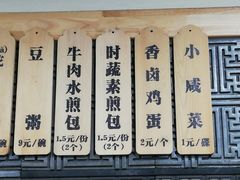 豆粥
9元/碗
牛肉水煎包
1.5元/份
(2个)
时蔬素煎包
1.5元/份
(2个)
香卤鸡蛋
2元/个
小咸菜
1元/碟